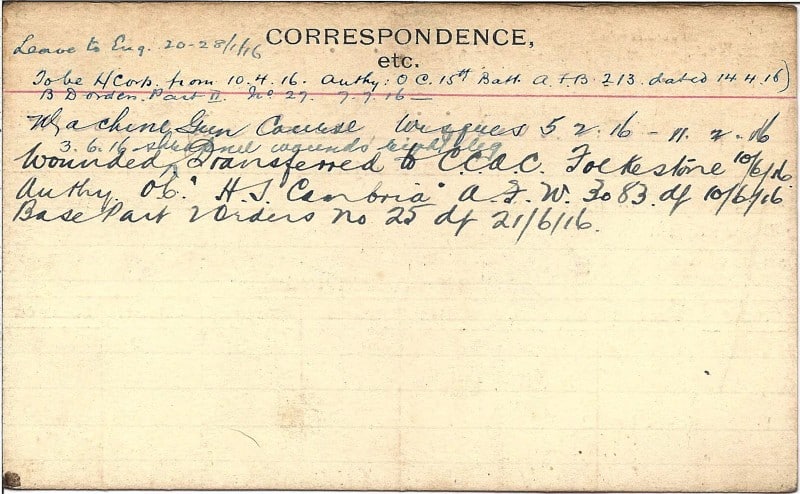 CORRESPONDENCE,
etc.
Leave to Eng. 20-28/1/16
To be L/Corp. from 10.4.16. Authy: O C. 15th Batt. A.F.B. 213. dated 14.4.16)
B Dorders. Part II. No. 27. 7.7.16 —
Machine Gun Course Wisques 5.2.16 - 11.2.16
3.6.16 - shrapnel wounds right leg
Wounded, Transferred to C.C.A.C. Folkestone 10/6/16.
Authy OC. "H.S. Cambria" A.F.W. 3083. df 10/6/16.
Base Part 2 Orders No 25 df 21/6/16.